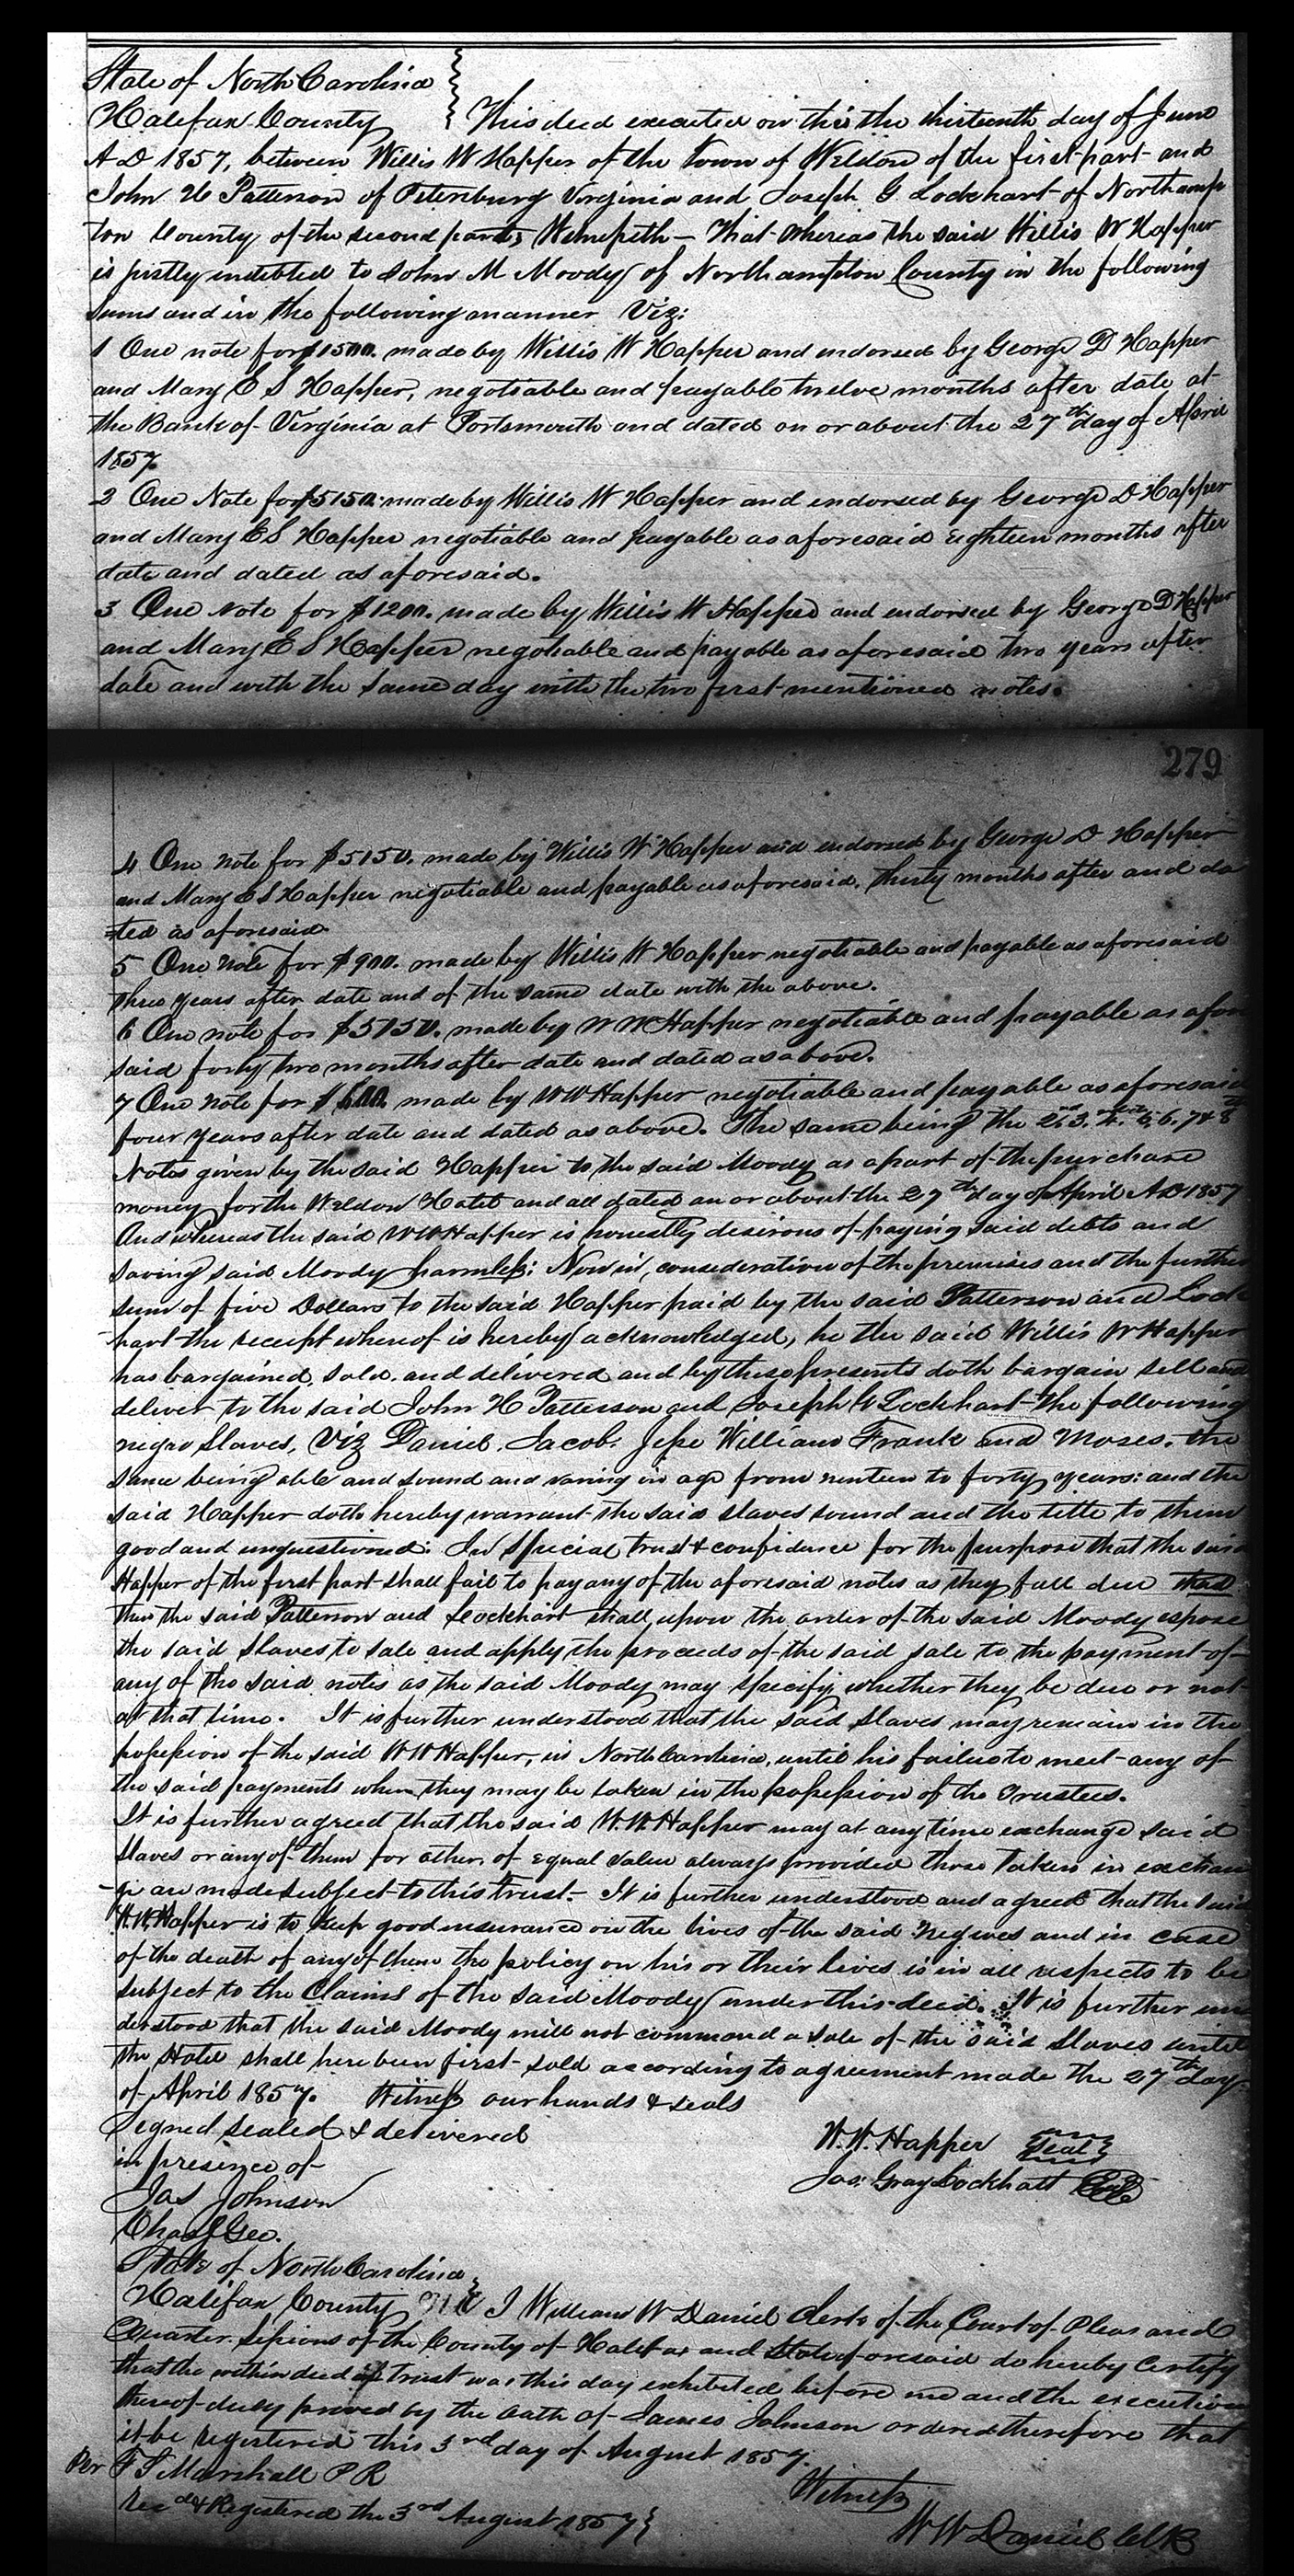 State of North Carolina
Halifax County } This deed executed on this the thirteenth day of June
A D 1857, between Willis W Happer of the town of Weldon of the first part and
John H Patterson of Petersburg Virginia and Joseph G. Lockhart of Northamp
ton County of the second part; Witnesseth – That whereas the said Willis W Happer
is justly indebted to John M Moody of Northampton County in the following
sums and in the following manner Viz:
1 One note for $1500. made by Willis W Happer and endorsed by George D Happer
and Mary E S Happer, negotiable and payable twelve months after date at
the Bank of Virginia at Portsmouth and dated on or about the 27th day of April
1857.
2 One Note for $5150. made by Willis W Happer and endorsed by George D Happer
and Mary E S Happer negotiable and payable as aforesaid eighteen months after
date and dated as aforesaid.
3 One Note for $1200. made by Willis W Happer and endorsed by George D Happer
and Mary E S Happer negotiable and payable as aforesaid two years after
date and with the same day with the two first mentioned notes.
279
4 One note for $5150. made by Willis W Happer and endorsed by George D Happer
and Mary E S Happer negotiable and payable as aforesaid, thirty months after and da
=ted as aforesaid.
5 One Note for $900. made by Willis W Happer negotiable and payable as aforesaid
three years after date and of the same date with the above.
6 One note for $5150. made by W W Happer negotiable and payable as afore
said forty two months after date and dated as above.
7 One note for $600. made by W W Happer negotiable and payable as aforesaid
four years after date and dated as above. The same being the 2nd 3. 4. 5. 6. 7 & 8th
Notes given by the said Happer to the said Moody as a part of the purchase
money for the Weldon Hotel and all dated on or about the 27th day of April A D 1857
And whereas the said W W Happer is honestly desirous of paying said debts and
saving said Moody harmless; Now in consideration of the premises and the further
sum of five Dollars to the said Happer paid by the said Patterson and Lock
hart the receipt whereof is hereby acknowledged, he the said Willis W Happer
has bargained, sold, and delivered and by these presents doth bargain sell and
deliver to the said John H Patterson and Joseph G Lockhart the following
negro Slaves, Viz Daniel, Jacob, Jesse William Frank and Moses. the
same being able and sound and varing in age from ninteen to forty years: and the
said Happer doth hereby warrant the said slaves sound and the title to them
good and unquestioned: In special trust & confidence for the purpose that the said
Happer of the first part shall fail to pay any of the aforesaid notes as they fall due
then the said Patterson and Lockhart shall upon the order of the said Moody expose
the said slaves to sale and apply the proceeds of the said sale to the payment of
any of the said notes as the said Moody may specify whether they be due or not
at that time. It is further understood that the said slaves may remain in the
possession of the said W W Happer, in North Carolina, until his failure to meet any of
the said payments when they may be taken in the possession of the Trustees.
It is further agreed that the said W. W. Happer may at any time exchange said
slaves or any of them for other, of equal value always provided those taken in exchan
-ge are made subject to this trust. It is further understood and agreed that the said
W. W. Happer is to keep good insurance on the lives of the said Negroes and in case
of the death of any of them the policy on his or their lives is in all respects to be
subject to the Claims of the said Moody under this deed. It is further un
derstood that the said Moody will not command a sale of the said slaves until
the Hotel shall have been first sold according to agreement made the 27th day
of April 1857. Witness our hands & seals
Signed sealed & delivered
W. W. Happer seal
in presence of
Jos: Gray Lockhart seal
Jas Johnson
Chas J Gee.
State of North Carolina
Halifax County } I William W Daniel Clerk of the Court of Pleas and
Quarter Sessions of the County of Halifax and State aforesaid do hereby Certify
that the within deed of trust was this day exhibited before me and the execution
thereof duly proved by the oath of James Johnson ordered therefore that
it be registered this 3rd day of August 1857.
Per F S Marshall P R
Witness
Recd & Registered the 3rd August 1857}
W W Daniel Clk